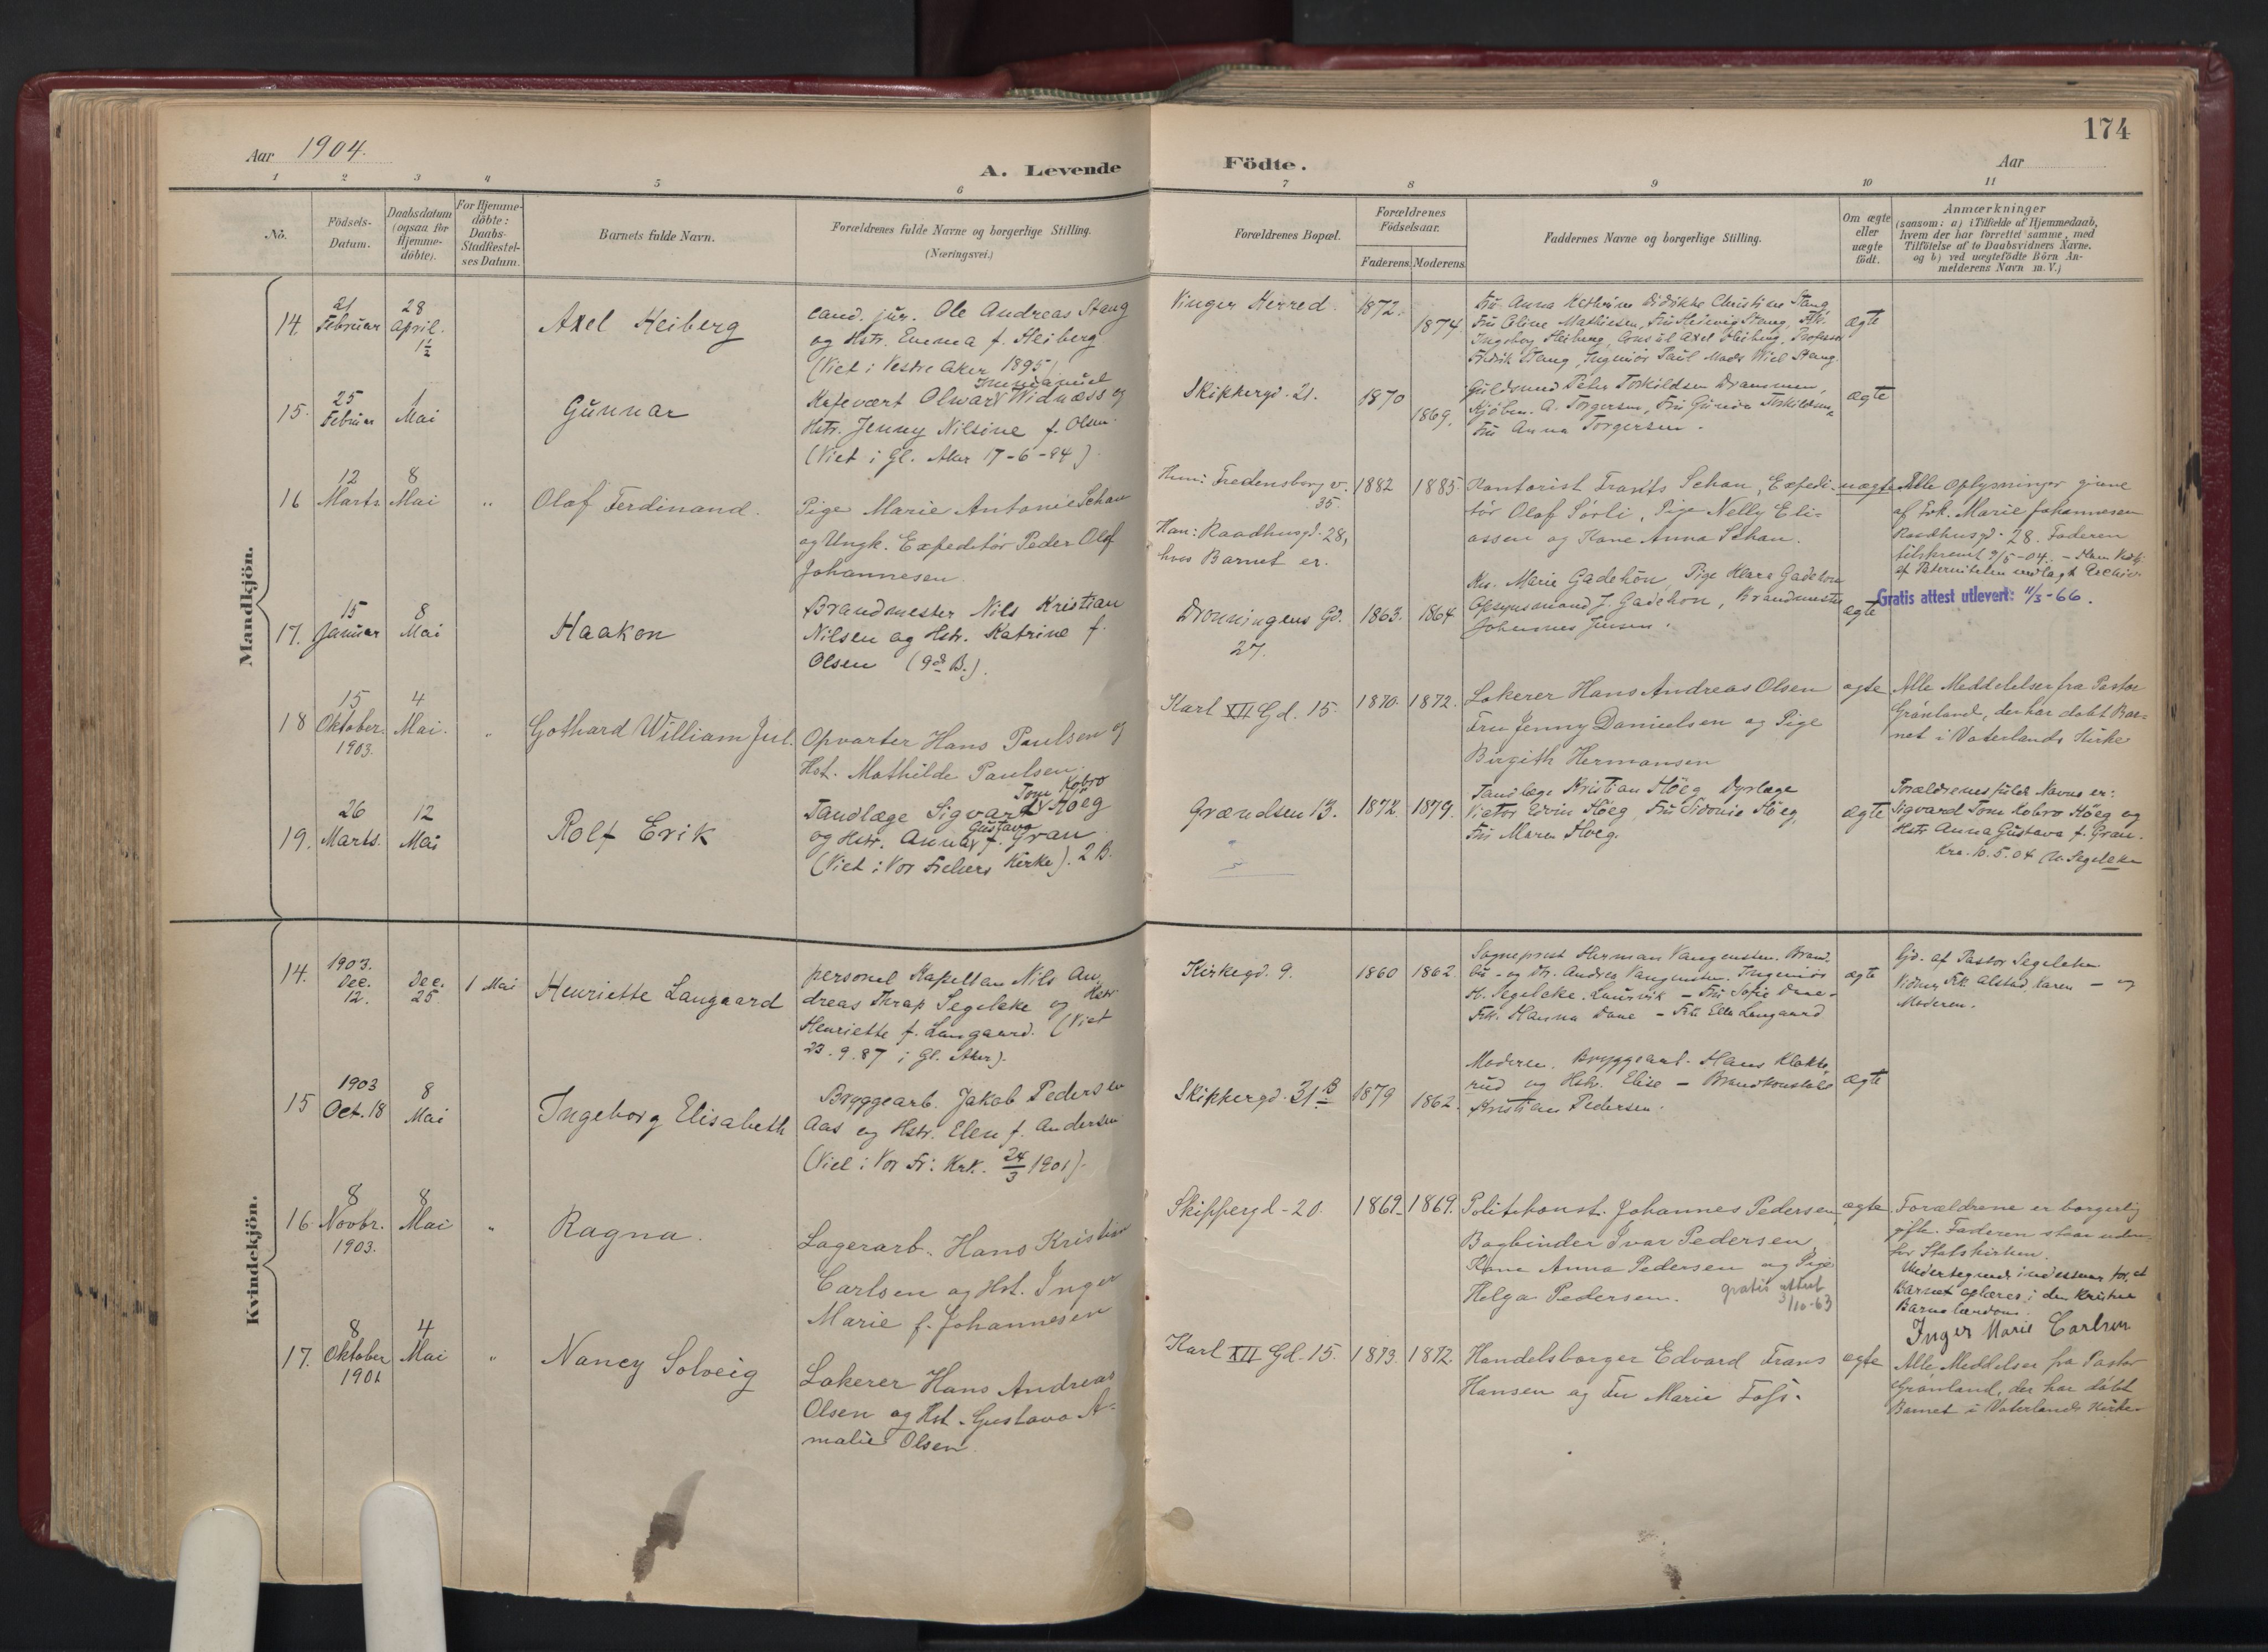 174
Aar 1904.
A. Levende Födte.
Aar
1 2 3 4 5 6 7 8 9 10 11
No.
Födsels-
Datum.
Daabsdatum
(ogsaa for
Hjemme-
döbte).
For Hjemme-
döbte:
Daabs-
Stadfæstel-
ses Datum.
Barnets fulde Navn.
Forældrenes fulde Navne og borgerlige Stilling.
(Næringsvei.)
Forældrenes Bopæl.
Forældrenes
Födselsaar.
Faderens. Moderens.
Faddernes Navne og borgerlige Stilling.
Om ægte
eller
uægte
födt.
Anmærkninger
(saasom: a) i Tilfælde af Hjemmedaab,
hvem der har forrettet samme, med
Tilföielse af to Daabsvidners Navne.
og b) ved uægtefödte Börn An-
melderens Navn m. V.)
Mandkjön.
14.
21
Februar
28
April.
1½
Axel Heiberg
cand. jur. Ole Andreas Stang
og Hstr. Emma f. Heiberg
(Viet i Vestre Aker 1895)
Vinger Herred.
1872.
1874
Fru Anna Kathrine Didikke Christine Stang
Fru Oline Mathiesen, Fru Hedevig Stang, Frk.
Ingeborg Heiberg, Consul Axel Heiberg, Professor
Fredrik Stang, Ingeniör Paul Mads Wiel Stang.
ægte
15.
25
Februar
1
Mai
Gunnar
Immanuel
Kafevært Olwar Widnæss og
Hstr. Jenny Nilsine f. Olsen.
(Viet i Gl. Aker 17-6-94)
Skippergd. 21.
1870
1869.
Guldsmed Peter Torkildsen Drammen,
Kjöbm. A. Torgersen, Fru Gunda Torkildsen,
Fru Anna Torgersen.
ægte
16
12
Marts
8
Mai
"
Olaf Ferdinand.
Pige Marie Antonie Schau
og Ungk. Expeditör Peder Olaf
Johannesen.
Hun: Fredensborg v.
35.
Han: Raadhusgd. 28,
hvor Barnet er.
1882
1885.
Kontorist Frants Schau, Expedi-
tör Olaf Sörli, Pige Nelly Eli-
assen og Kone Anna Schau.
uægte
Alle Oplysninger givne
af Frk. Marie Johannesen
Raadhusgd. 28. Faderen
tilskrevet 9/5-04.
Gratis attest utlevert: 11/3-66.
17.
15
Januar
8
Mai
Haakon
Brandmester Nils Kristian
Nilsen og Hstr. Katrine f.
Olsen (9de B.).
Dronningens Gd.
27.
1863.
1864
Kns. Marie Gadehön, Pige Klara Gadehön
Opsynsmand J. Gadehön, Brandmester
Johannes Jensen.
ægte
18
15
Oktober.
1903.
4
Mai.
"
Gothard William Jul.
Opvarter Hans Paulsen og
Hst. Mathilde Paulsen.
Karl XII Gd. 15.
1870.
1872.
Lakerer Hans Andreas Olsen
Fru Jenny Danielsen og Pige
Birgith Hermansen
ægte
Alle Meddelelser fra Pastor
Grönland, der har döbt Bar-
net i Vaterlands Kirke
19.
26
Marts.
12
Mai
Rolf Erik
Tom Kobro
Tandlæge Sigvard Höeg
Gustava
og Hstr. Anna f. Gran
(Viet i Vor Frelsers Kirke). 2 B.
Grændsen 13.
1872.
1879.
Tandlæge Kristian Höeg Dyrlæge
Victor Edvin Höeg, Fru Sidonie Höeg,
Fru Maren Höeg.
ægte
Forældrenes fulde Navne er:
Sigvard Tom Kobro Höeg og
Hstr. Anna Gustava f. Gran.
Kra. 10.5.04 N. Segelcke
Kvindekjön.
14.
1903.
Dec.
12.
Dec.
25
1 Mai
Henriette Langaard
personel Kapellan Nils An-
dreas Thrap Segelcke og Hstr
Henriette f. Langaard. (Viet
23.9.87 i Gl. Aker).
Kirkegd. 9.
1860
1862
Sogneprest Herman Vangensten.
Dr. Andrea Vangensten. Ingeniör
Segelcke. Laurvik – Fru Sofie Dane –
Frk. Hanna Dane – Frk Ella Langaard
ægte
Gjd. af Pastor Segelcke
Vidner Frk. Alstad, Karen – og
Moderen.
15
1903
Oct. 18
8
Mai
Ingeborg Elisabeth
Bryggearb. Jakob Pedersen
Aas og Hstr. Elen f. Andersen
(Viet i Vor Fr: Krk. 24/3 1901).
Skippergd. 31 B
1879
1862.
Moderen. Bryggearb. Hans Klokke-
rud og Hstr. Elise – Brandkonstabel
Kristian Pedersen.
ægte
16.
8
Novbr.
1903.
8
Mai
"
Ragna.
Lagerarb. Hans Kristian
Carlsen og Hst. Inger
Marie f. Johannesen
Skippergd - 20.
1869.
1869.
Politikonst. Johannes Pedersen
Bogbinder Ivar Pedersen,
Kone Anna Pedersen og Pige
Helga Pedersen.
gratis attest
3/10-63
ægte
Forældrene er borgerlig
gifte. Faderen staar uden-
for Statskirken.
Undertegnede indestaar for, at
Barnet oplæres i den kristne
Barnelærdom.
Inger Marie Carlsen
17.
8
Oktober
1901
4
Mai
"
Nancy Solveig
Lakerer Hans Andreas
Olsen og Hst. Gustava A-
malie Olsen.
Karl XII Gd. 15.
1873.
1872.
Handelsborger Edvard Frans
Hansen og Fru Marie Foss.
ægte
Alle Meddelser fra Pastor
Grönland, der har döbt
Barnet i Vaterlands Kirke